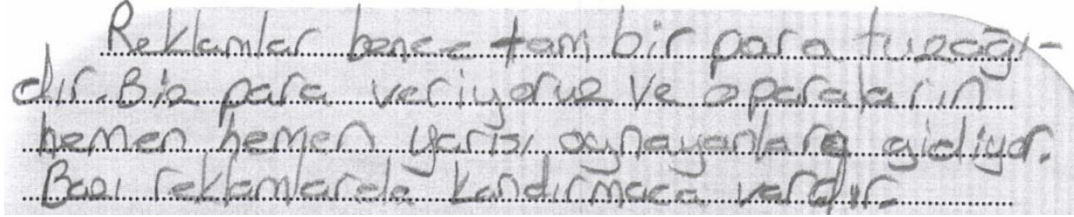 Reklamlar bence tam bir para tuzağı-
dır. Biz para veriyoruz ve oparaların
hemen hemen yarısı oynayanlara gidiyor.
Bazı reklamlarda kandırmaca vardır.